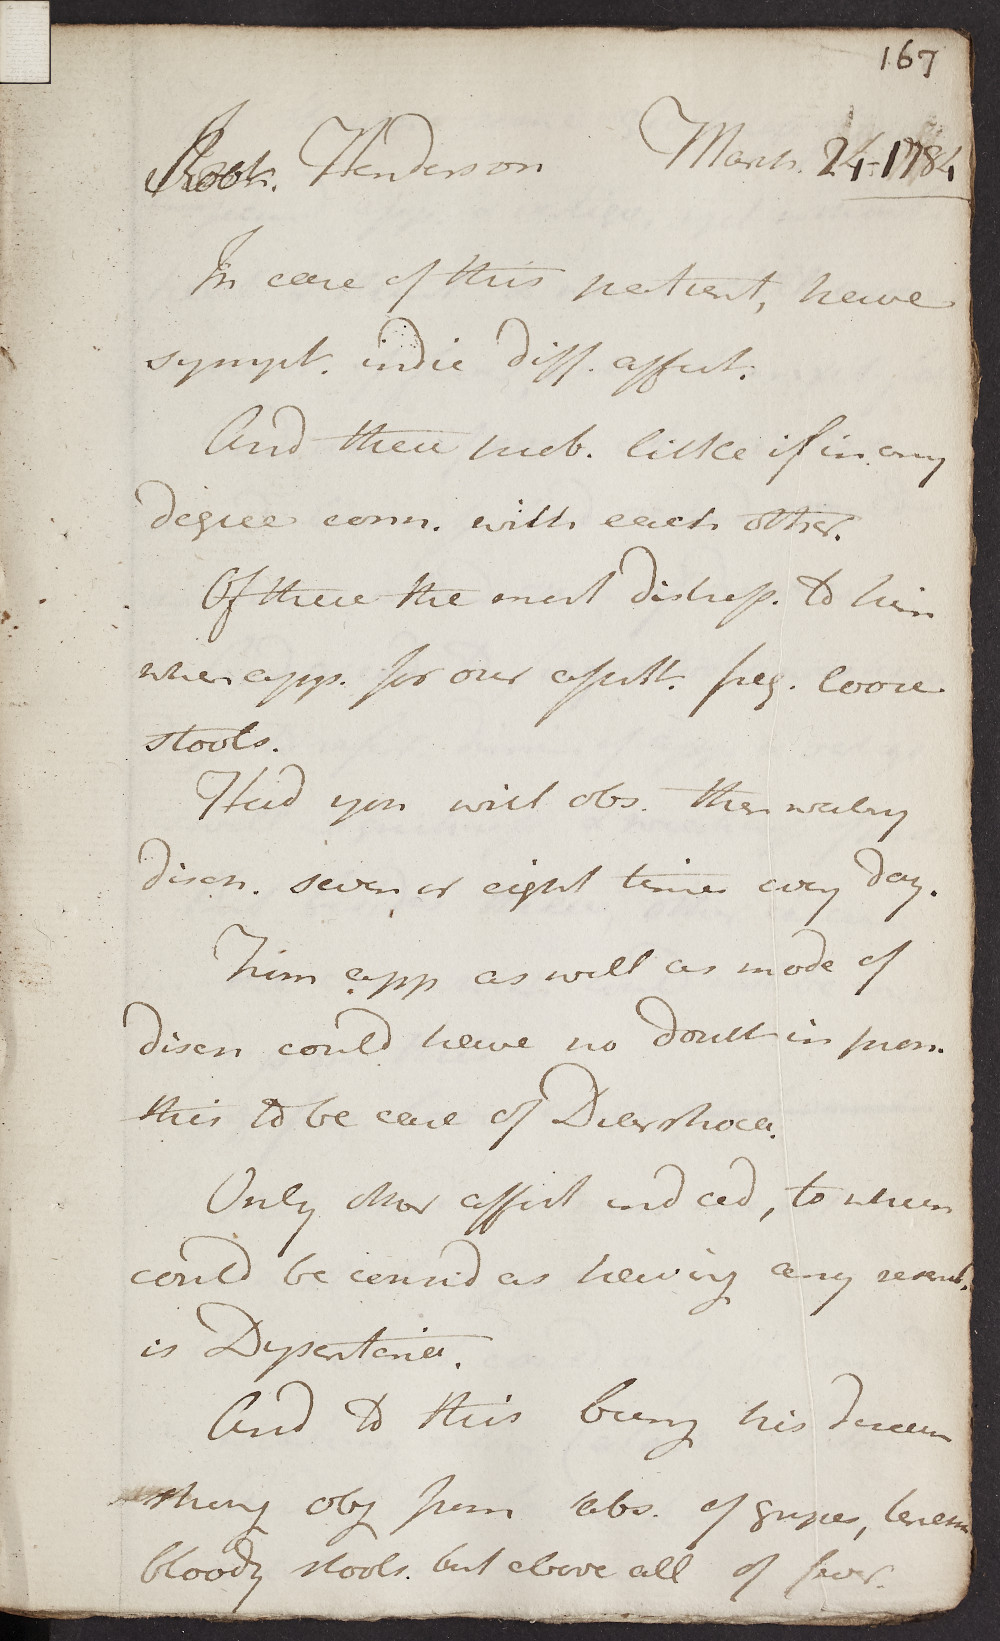 167
Henderson March. 24-1784
In case of this patient, have
sympt. indic diff. affect.
And these prob. little if in any
degree conn. with each other.
Of these the most distress. to him
when app. for our assist. freq. loose
stools.
Had you will obs. then watery
disch. seven or eight times every day.
From app as well as mode of
disch could have no doubt in pron.
this to be case of Diarrhoea.
Only other affect ind ced, to whch
could be consid as having any resemb.
is Dysenteria.
And to this being his disease
strong obj from abs. of gripes, tenesm
bloody stools. but above all of fever.